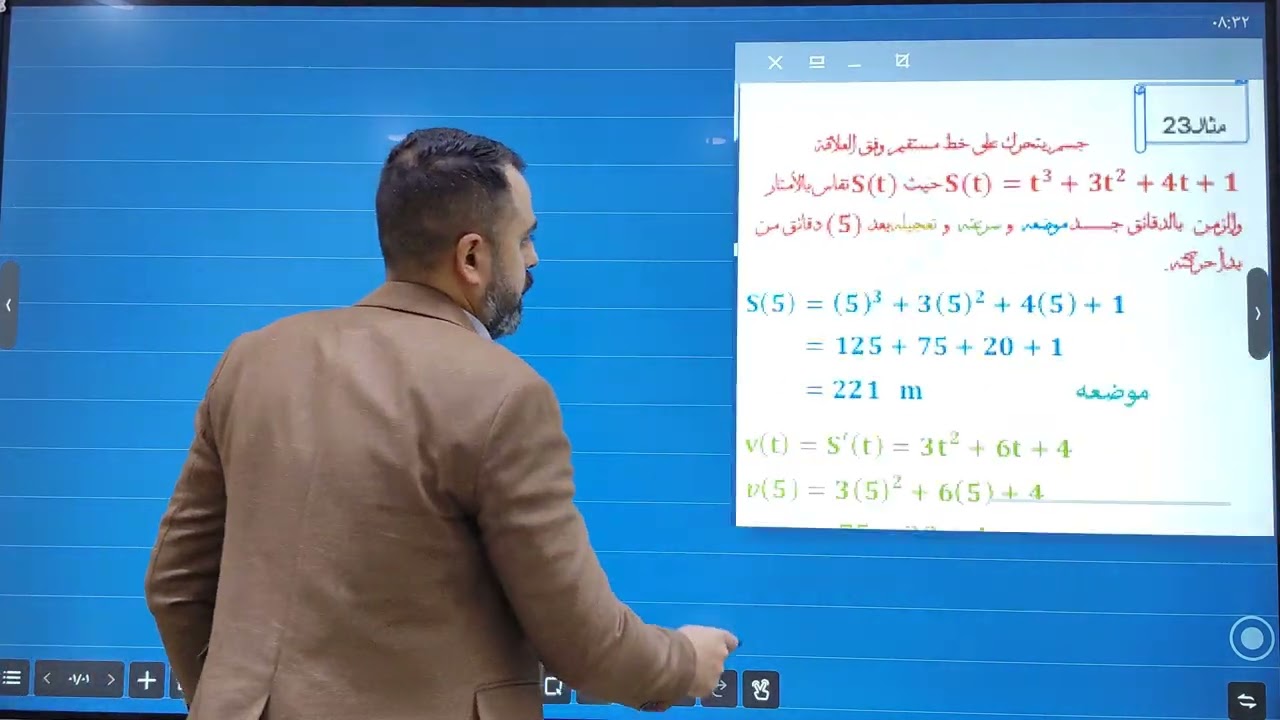 ٠٨:٣٢
مثال23
جسم يتحرك على خط مستقيم وفق العلاقة
S(t) = t³ + 3t² + 4t + 1 حيث S(t) تقاس بالأمتار
والزمن بالدقائق جـــد موضعه و سرعته و تعجيله بعد (5) دقائق من
بدأ حركته.
S(5) = (5)³ + 3(5)² + 4(5) + 1
= 125 + 75 + 20 + 1
= 221 m موضعه
v(t) = S′(t) = 3t² + 6t + 4
v(5) = 3(5)² + 6(5) + 4
٠١/٠١